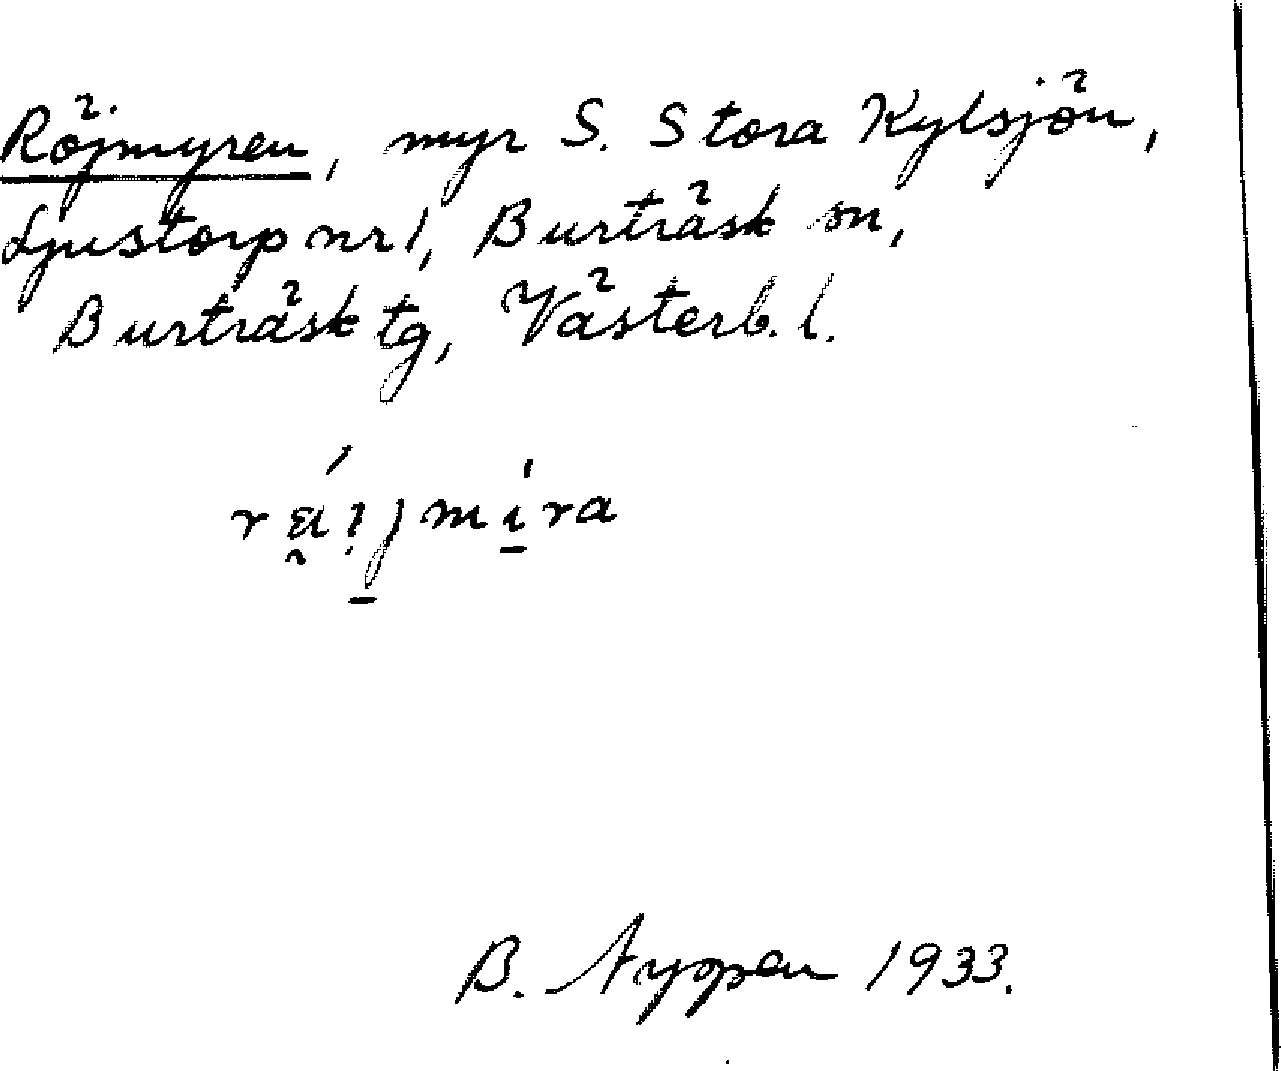 Röjmyren, myr S. Stora Kylsjön,
Ljustorp nr 1, Burträsk sn,
Burträsk tg, Västerb. l.
B. 1933.